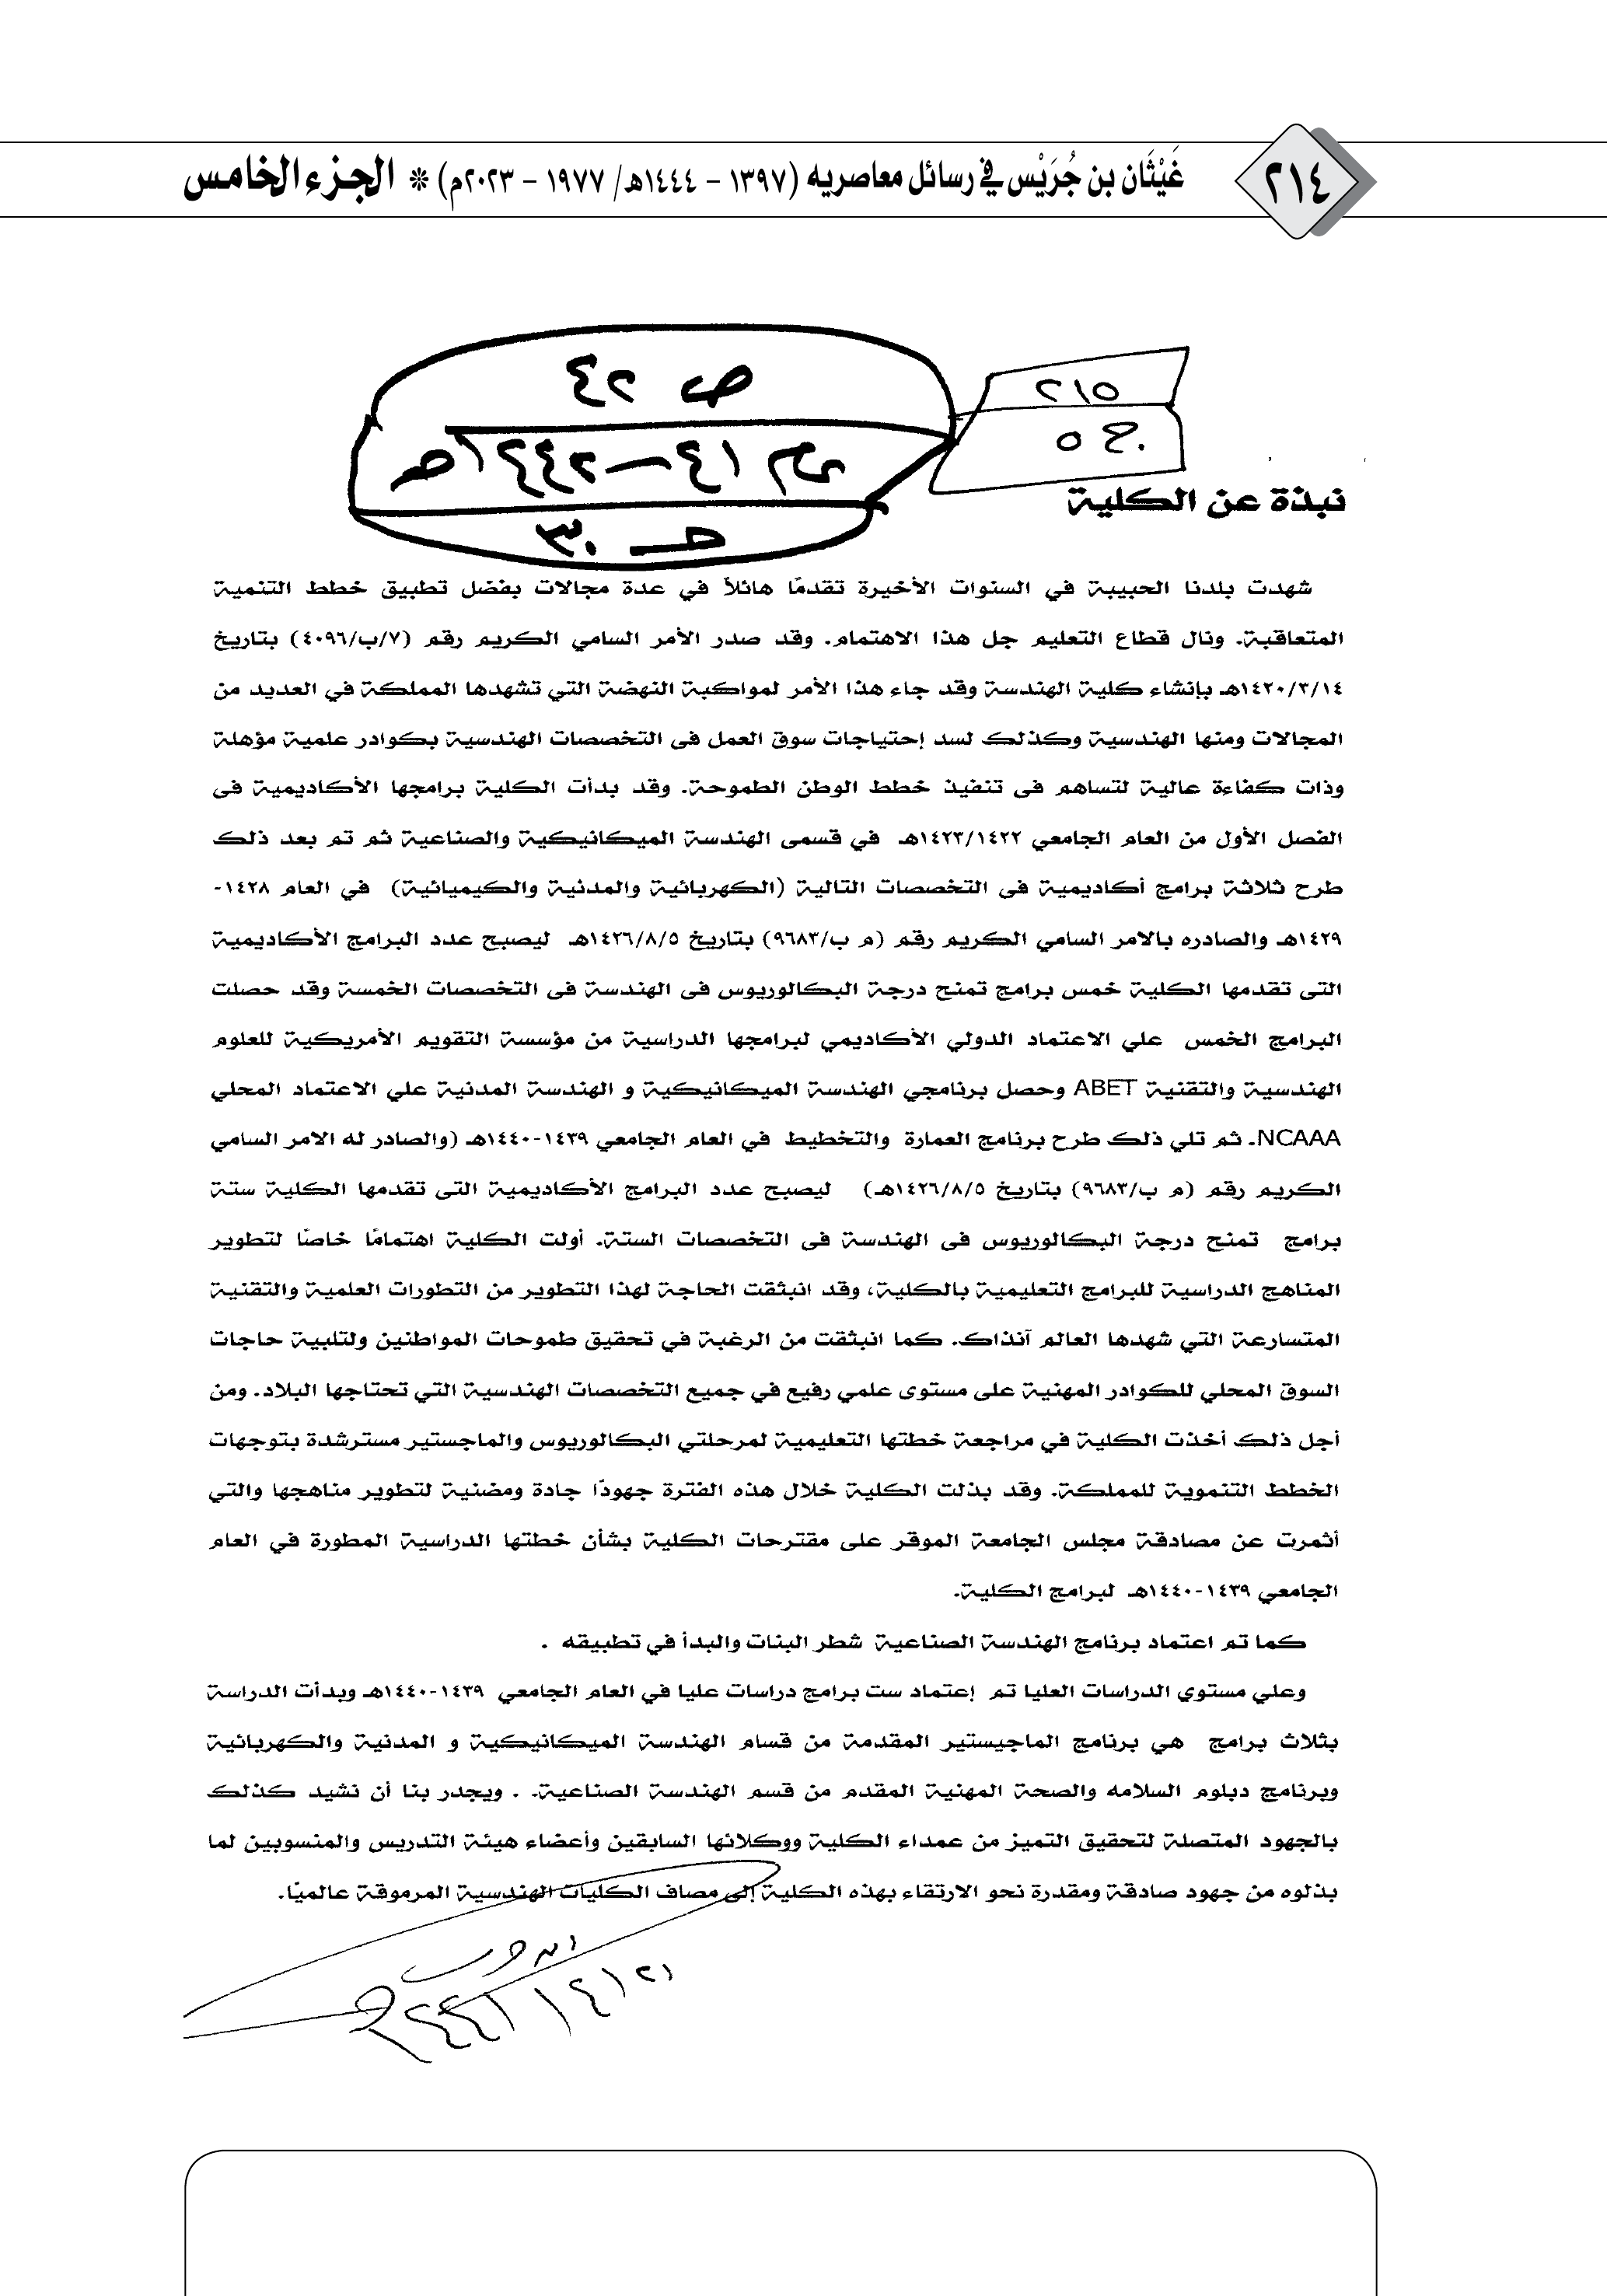 ٢١٤
غَيْثَان بن جُرَيْس في رسائل معاصريه (١٣٩٧ – ١٤٤٤هـ/ ١٩٧٧ – ٢٠٢٣م) * الجزء الخامس
ص ٤٢
٤١ – ١٤٤٢هـ
٣٠
٢١٥
ج ٥
نبذة عن الكلية
شهدت بلدنا الحبيبة في السنوات الأخيرة تقدمًا هائلاً في عدة مجالات بفضل تطبيق خطط التنمية
المتعاقبة. ونال قطاع التعليم جل هذا الاهتمام. وقد صدر الأمر السامي الكريم رقم (٧/ب/٤٠٩٦) بتاريخ
١٤٢٠/٣/١٤هـ بإنشاء كلية الهندسة وقد جاء هذا الأمر لمواكبة النهضة التي تشهدها المملكة في العديد من
المجالات ومنها الهندسية وكذلك لسد إحتياجات سوق العمل فى التخصصات الهندسية بكوادر علمية مؤهلة
وذات كفاءة عالية لتساهم فى تنفيذ خطط الوطن الطموحة. وقد بدأت الكلية برامجها الأكاديمية فى
الفصل الأول من العام الجامعي ١٤٢٣/١٤٢٢هـ في قسمى الهندسة الميكانيكية والصناعية ثم تم بعد ذلك
طرح ثلاثة برامج أكاديمية فى التخصصات التالية (الكهربائية والمدنية والكيميائية) في العام ١٤٢٨-
١٤٢٩هـ والصادره بالامر السامي الكريم رقم (م ب/٩٦٨٣) بتاريخ ١٤٢٦/٨/٥هـ ليصبح عدد البرامج الأكاديمية
التى تقدمها الكلية خمس برامج تمنح درجة البكالوريوس فى الهندسة فى التخصصات الخمسة وقد حصلت
البرامج الخمس علي الاعتماد الدولي الأكاديمي لبرامجها الدراسية من مؤسسة التقويم الأمريكية للعلوم
الهندسية والتقنية ABET وحصل برنامجي الهندسة الميكانيكية و الهندسة المدنية علي الاعتماد المحلي
NCAAA. ثم تلي ذلك طرح برنامج العمارة والتخطيط في العام الجامعي ١٤٣٩-١٤٤٠هـ (والصادر له الامر السامي
الكريم رقم (م ب/٩٦٨٣) بتاريخ ١٤٢٦/٨/٥هـ) ليصبح عدد البرامج الأكاديمية التى تقدمها الكلية ستة
برامج تمنح درجة البكالوريوس فى الهندسة فى التخصصات الستة. أولت الكلية اهتمامًا خاصًا لتطوير
المناهج الدراسية للبرامج التعليمية بالكلية، وقد انبثقت الحاجة لهذا التطوير من التطورات العلمية والتقنية
المتسارعة التي شهدها العالم آنذاك. كما انبثقت من الرغبة في تحقيق طموحات المواطنين ولتلبية حاجات
السوق المحلي للكوادر المهنية على مستوى علمي رفيع في جميع التخصصات الهندسية التي تحتاجها البلاد. ومن
أجل ذلك أخذت الكلية في مراجعة خطتها التعليمية لمرحلتي البكالوريوس والماجستير مسترشدة بتوجهات
الخطط التنموية للمملكة. وقد بذلت الكلية خلال هذه الفترة جهودًا جادة ومضنية لتطوير مناهجها والتي
أثمرت عن مصادقة مجلس الجامعة الموقر على مقترحات الكلية بشأن خطتها الدراسية المطورة في العام
الجامعي ١٤٣٩-١٤٤٠هـ لبرامج الكلية.
كما تم اعتماد برنامج الهندسة الصناعية شطر البنات والبدأ في تطبيقه .
وعلي مستوي الدراسات العليا تم إعتماد ست برامج دراسات عليا في العام الجامعي ١٤٣٩-١٤٤٠هـ وبدأت الدراسة
بثلاث برامج هي برنامج الماجيستير المقدمة من قسام الهندسة الميكانيكية و المدنية والكهربائية
وبرنامج دبلوم السلامه والصحة المهنية المقدم من قسم الهندسة الصناعية. . ويجدر بنا أن نشيد كذلك
بالجهود المتصلة لتحقيق التميز من عمداء الكلية ووكلائها السابقين وأعضاء هيئة التدريس والمنسوبين لما
بذلوه من جهود صادقة ومقدرة نحو الارتقاء بهذه الكلية إلى مصاف الكليات الهندسية المرموقة عالميًا.